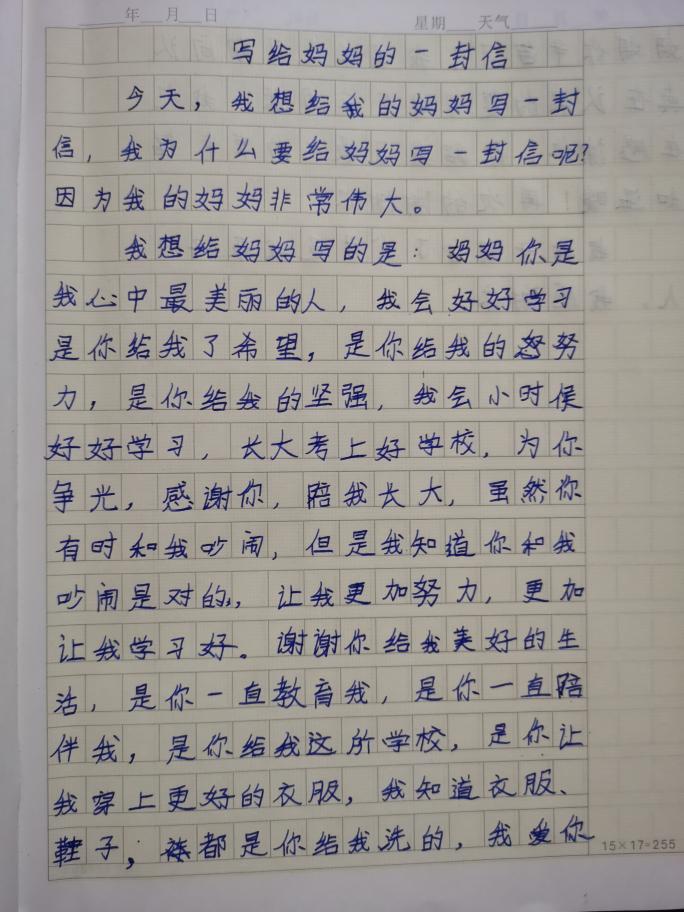 年 月 日 星期 天气
写给妈妈的一封信
今天，我想给我的妈妈写一封
信，我为什么要给妈妈写一封信呢？
因为我的妈妈非常伟大。
我想给妈妈写的是：妈妈你是
我心中最美丽的人，我会好好学习
是你给我了希望，是你给我的努
力，是你给我的坚强，我会小时侯
好好学习，长大考上好学校，为你
争光，感谢你，陪我长大，虽然你
有时和我吵闹，但是我知道你和我
吵闹是对的，让我更加努力，更加
让我学习好。谢谢你给我美好的生
活，是你一直教育我，是你一直陪
伴我，是你给我这所学校，是你让
我穿上更好的衣服，我知道衣服、
鞋子，都是你给我洗的，我爱你
15×17=255